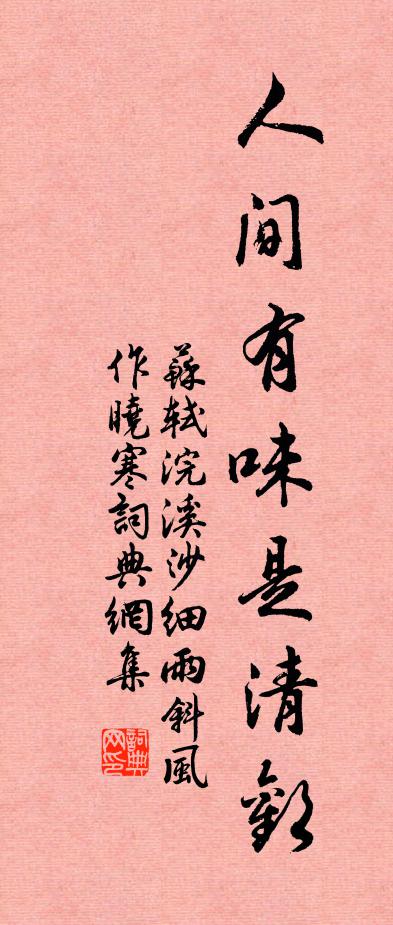 人间有味是清歡
蘇軾浣溪沙細雨斜風
作曉寒詞典網集
詞典
网印